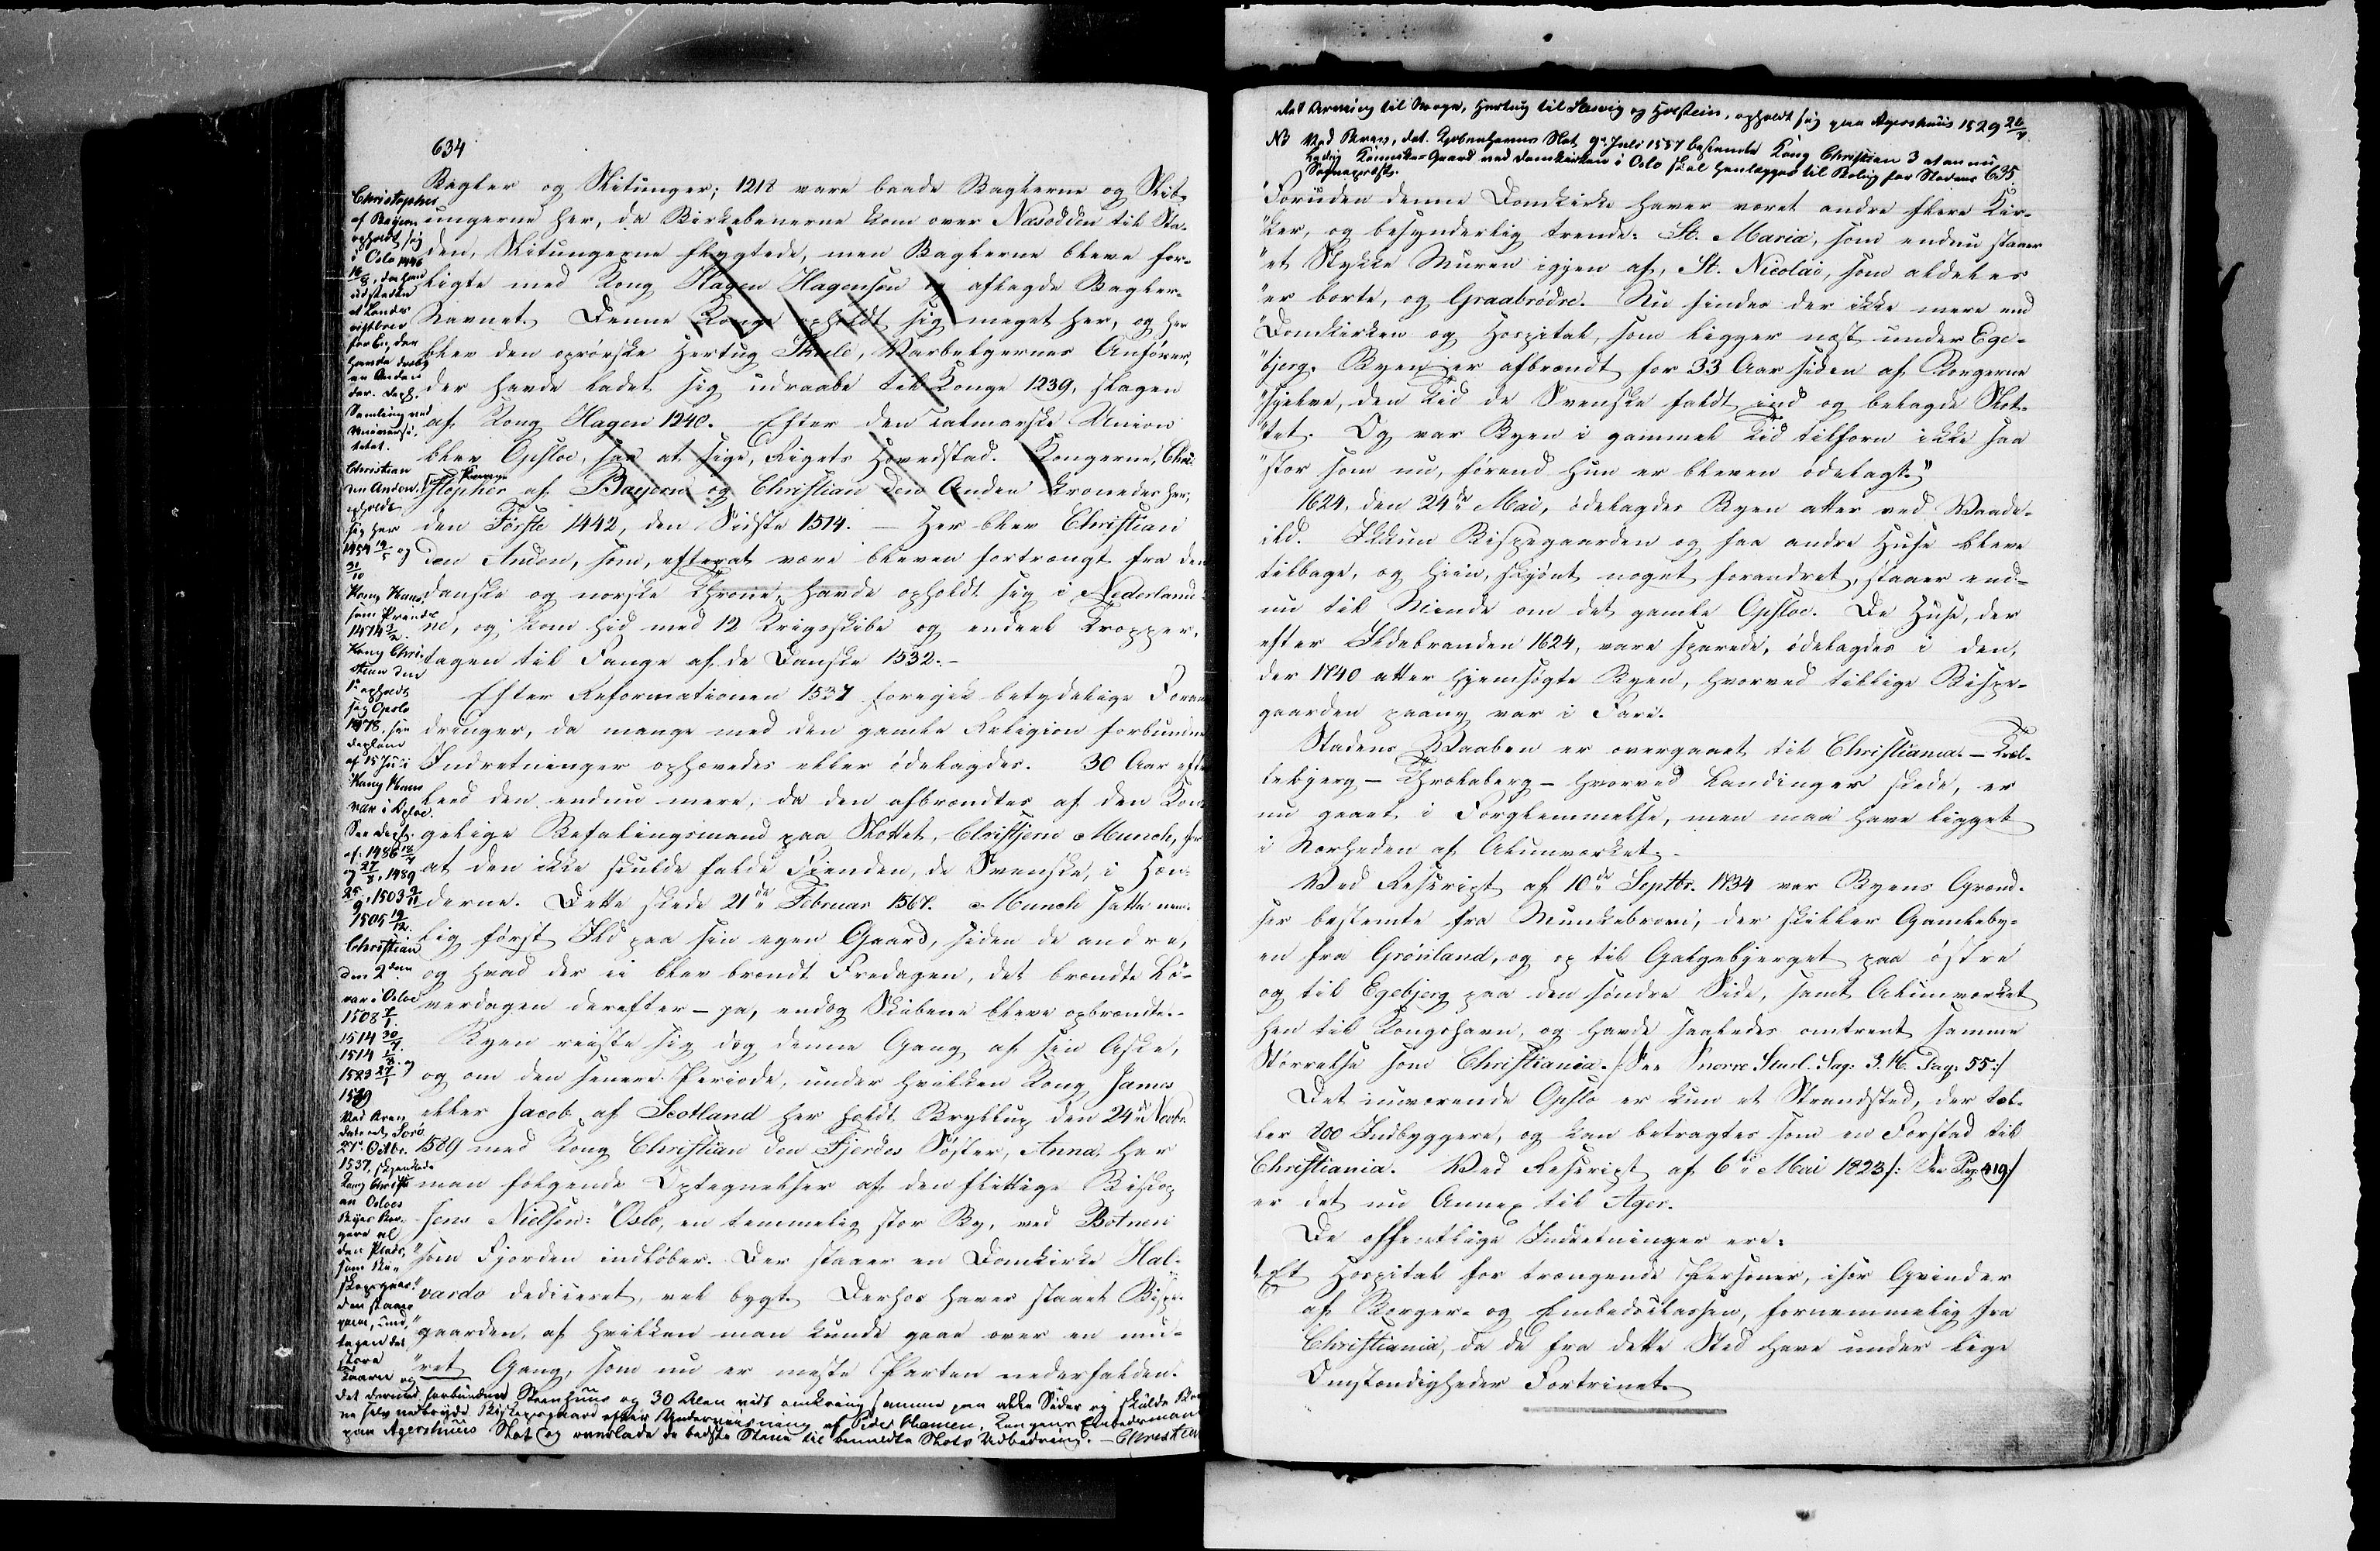 634
Bagler og Slitunger; 1218 vare baade Baglerne og Slit-
ungerne her, da Birkebenerne kom over Næsodden til Sta-
den, Slitungerne flygtede, men Baglerne bleve for-
ligte med Kong Hagen Hagensøn og aflagde Bagler-
Navnet. Denne Konge opholdt sig meget her, og her
blev den oprørske Hertug Skule, Varbelgernes Anfører,
der havde ladet sig udraabe til Konge 1239, slagen
af Kong Hagen 1240. Efter den calmarske Union
blev Opsloe, saa at sige, Rigets Hovedstad. Kongerne, Chri-
stopher af Bayern og Christian den Anden kronedes her,
den Første 1442, den Sidste 1514. — Her blev Christian
den Anden, som, efterat være bleven fortrængt fra den
danske og norske Throne, havde opholdt sig i Nederland
ne, og kom hid med 12 Krigsskibe og endeel Tropper,
tagen til Fange af de Danske 1532.-
Efter Reformationen 1537 foregik betydelige Foran
dringer, da mange med den gamle Religion forbundne
Indretninger ophævedes eller ødelagdes. 30 Aar efter
leed den endnu mere, da den afbrændtes af den Kon-
gelige Befalingsmand paa Slottet, Christjern Munch, for
at den ikke skulde falde Fienden, de Svenske, i Hæn-
derne. Dette skede 21de Februar 1567. Munch satte nem-
lig først Ild paa sin egen Gaard, siden de andre,
og hvad der ei blev brændt Fredagen, det brændte Lø-
verdagen derefter — ja, endog Skibene bleve opbrændte.-
Byen reiste sig dog denne Gang af sin Aske,
og om den senere Periode, under hvilken Kong James
eller Jacob af Scotland her holdt Bryllup den 24de Novbr.
1589 med Kong Christian den Fjerdes Søster, Anna, har
man følgende Optegnelser af den flittige Biskop
Jens Nielsøn: "Oslo, en temmelig stor By, ved Botnen
"som Fjorden indløber. Der staaer en Domkirke Hal-
"vardo dediceret, vel bygt. Derhos haver staaet Bispe-
"gaarden, af hvilken man kunde gaae over en mu-
"ret Gang, som nu er meste Parten nederfalden.
Christopher
af Bayern
opholdt sig
i Oslo 1446
16/8, da han
udstedte
et Lands
vistbrev
Samling ved
Universi-
tetet.
Christian
den Anden, som Konge
opholdt
sig her
1454 14/5 og
31/10
Kong Hans,
som Prinds
1474 3/2.
Kong Chri-
stian den
1e opholdt
sig Opslo
1478, see
Deplom
af 15 Juli
Kong Hans
var i Opsloe.
See Depl.
af: 1486 18/4
og 27/8, 1489
25/9, 1503 2/11
1505 19/12.
Christian
den 2den
var i Osloe
1508 7/1.
1514 30/7.
1514 1/8.
1523 27/1 og
1529
Ved Brev
dateret Sorø
27de Octbr.
1537, skjenkede
Kong Christi
an Osloes
Byes Bor-
gere al
den Plads,
som Bi-
skopsgaar-
den staaer
paa, und-
tagen det
store
Taarn og
det dermed forbundne Steenhuus og 30 Alen vidt omkring samme paa alle Sider og skulde Bor
ne selv nedbryde Biskopsgaard efter Underviisning af Peder Hansen, Kongens Embedsmand
paa Agershuus Slot og overlade de bedste Stene til bemeldte Slots Udbedring. — Christian
ret Arving til Norge, Hertug til Slesvig og Holstein, opholdt sig paa Agershuus 1529 26/7.
NB Ved Brev, dat. Kjøbenhavns Slot 9de Juli 1557 bestemte Kong Christian 3 at en nu
ledig Kannike-Gaard ved Domkirken i Oslo skal henlægges til Bolig for Stedets
Sogneprest.
635
"Foruden denne Domkirke haver været andre flere Kir-
"ker, og besynderlig trende: St. Maria, som endnu staaer
"et Stykke Muren igjen af, St. Nicolai, som aldeles
"er borte, og Graabrødre. Nu findes der ikke mere end
"Domkirken og Hospital, som ligger næst under Ege-
"bjerg. Byen er afbrændt for 33 Aar siden af Borgerne
"sjelve, den Tid de Svenske faldt ind og belagde Slot-
"tet. Og var Byen i gammel Tid tilforn ikke saa
"stor som nu, førend hun er bleven ødelagt."
1624, den 24de Mai, ødelagdes Byen atter ved Vaade-
ild. Ikkun Bispegaarden og faa andre Huse bleve
tilbage, og hiin, skjønt noget forandret, staaer end-
nu til Minde om det gamle Opsloe. De Huse, der
efter Ildebranden 1624, vare sparede, ødelagdes i den,
der 1740 atter hjemsøgte Byen, hvorved tillige Bispe-
gaarden paany var i Fare.
Stadens Vaaben er overgaaet til Christiania. — Træl-
lebjerg — Thrælaberg — hvorved Landinger skede, er
nu gaaet i Forglemmelse, men maa have ligget
i Nærheden af Alunværket.-
Ved Rescript af 10de Septbr. 1734 var Byens Grænd-
ser bestemte fra Munkebroen, der skiller Gamleby-
en fra Grønland, og op til Galgebjerget paa østre
og til Egebjerg paa den søndre Side, samt Alunværket
hen til Kongshavn, og havde saaledes omtrent samme
Størrelse som Christiania. /: See Snorre Sturl. Sag. 3. H. Pag. 55:/
Det nuværende Opslo er kun et Strandsted, der tæl-
ler 800 Indbyggere, og kan betragtes som en Forstad til
Christiania. Ved Rescript af 6te Mai 1823 /: See Pag. 419:/
er det nu Annex til Ager.
De offentlige Indretninger ere:
1, Et Hospital for trængende Personer, især Qvinder
af Borger- og Embedsclassen, fornemmelig fra
Christiania, da de fra dette Sted have under lige
Omstændigheder Fortrinet.